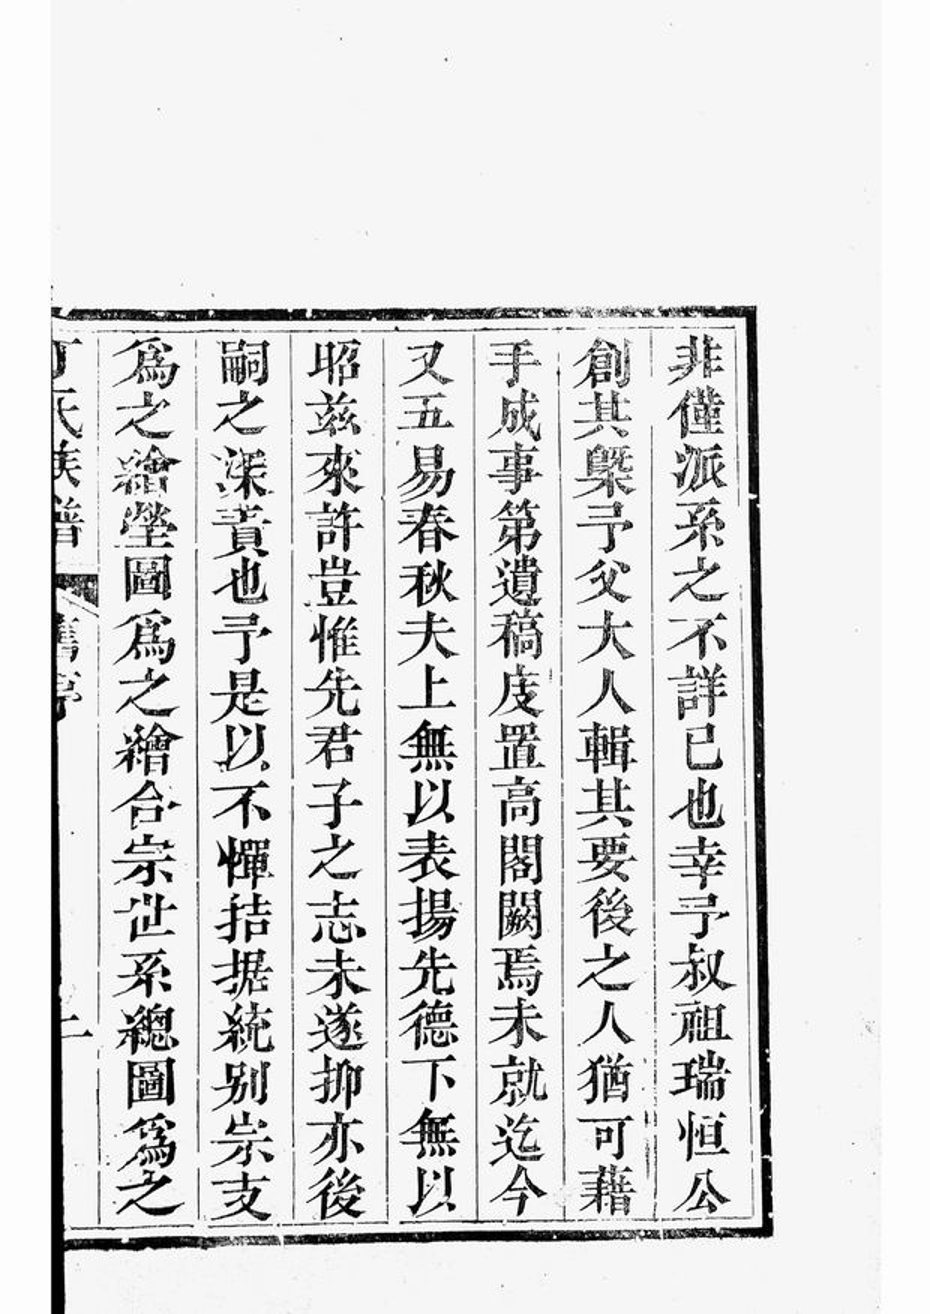 非僅派系之不詳已也幸予叔祖瑞恒公
創其槩予父大人輯其要後之人猶可藉
手成事第遺稿庋置高閣闕焉未就迄今
又五易春秋夫上無以表揚先德下無以
昭兹來許豈惟先君子之志未遂抑亦後
嗣之深責也予是以不憚拮据統别宗支
爲之繪塋圖爲之繪合宗世系總圖爲之
氏族譜 舊序